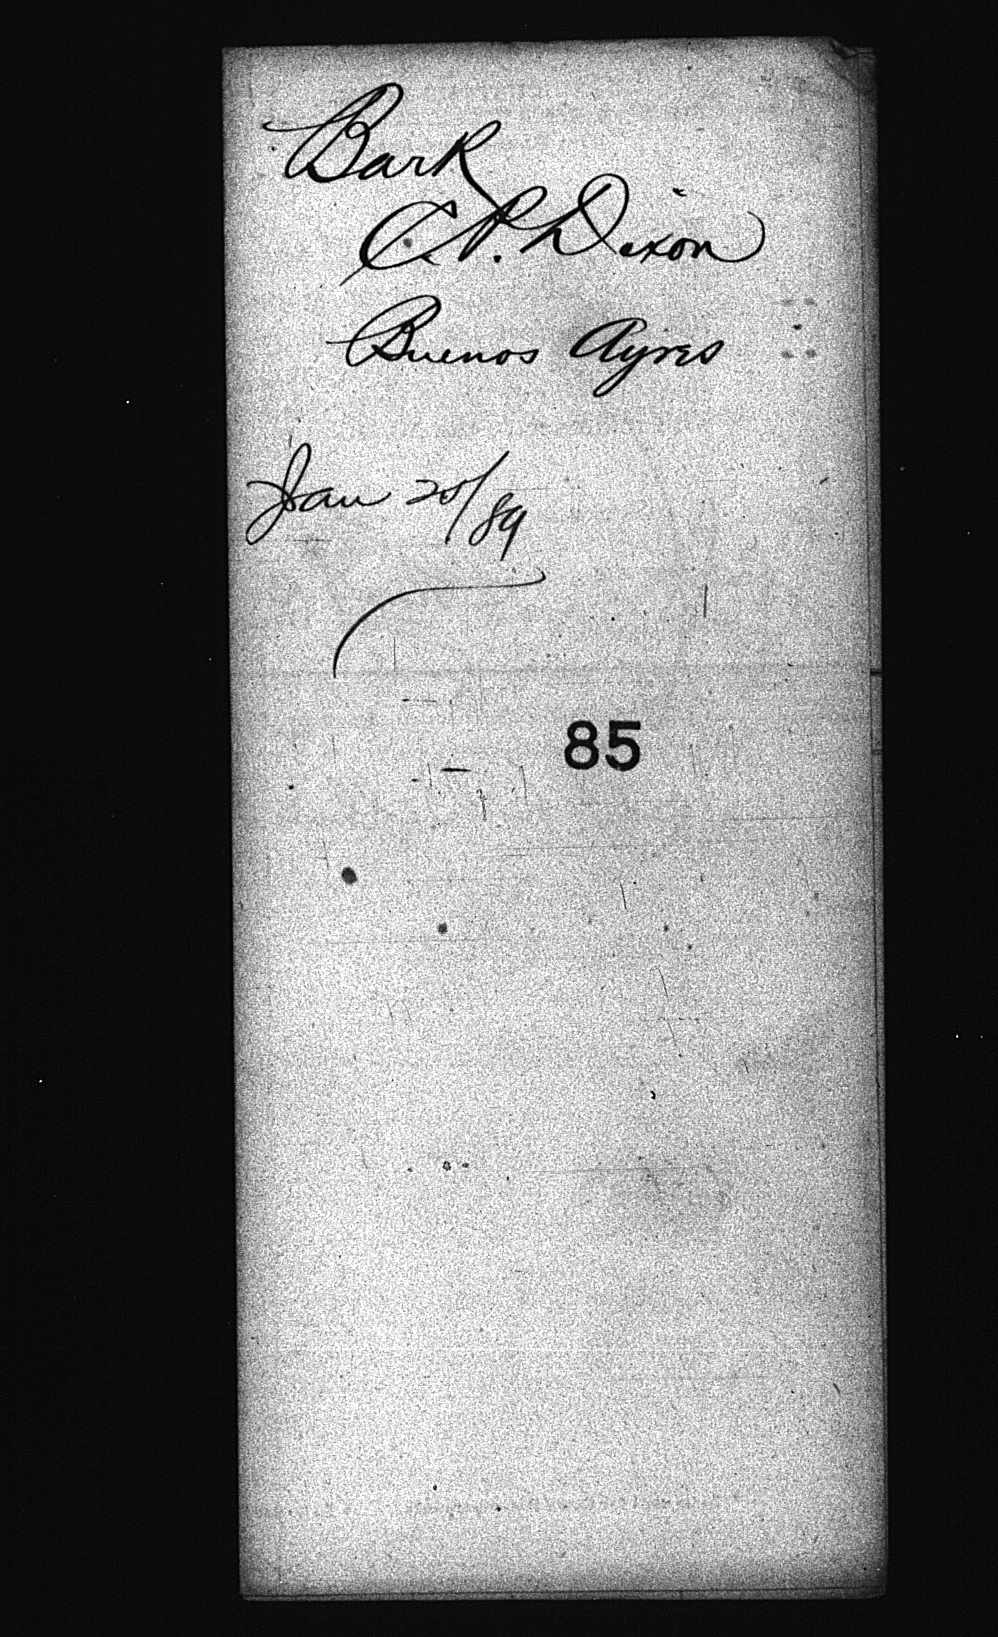 Bark
C. P. Dixon
Buenos Ayres
Jan 25/89
85